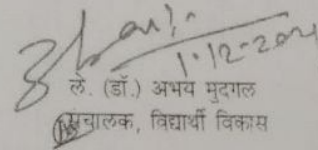 1.12-2021
ले. (डॉ.) अभय मुदगल
संचालक, विद्यार्थी विकास